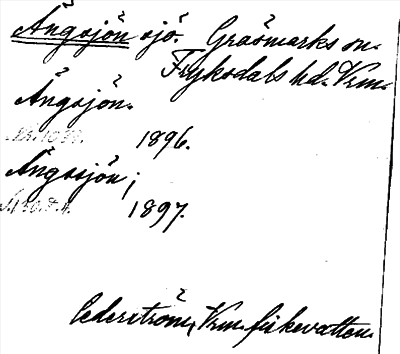 Ängsjön sjö Gräsmarks sn.
Fryksdals hd. Vrm.
Ängsjön.
1896.
Ängssjön;
1897.
Cederström, Vrm. fiskevatten.